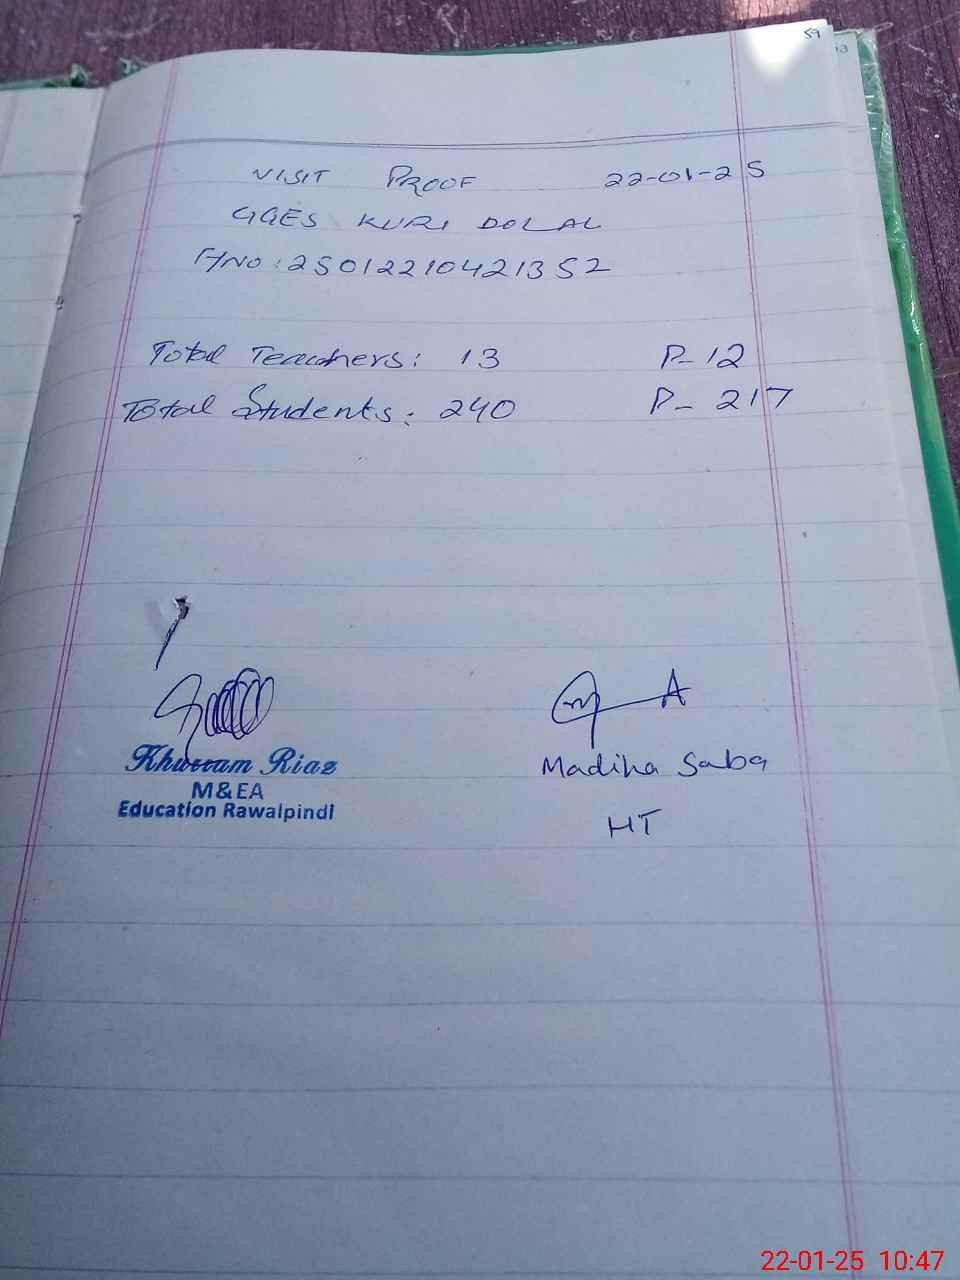 59
VISIT PROOF 22-01-25
GGES KURI DOLAL
A/NO: 25012210421352
Total Teachers: 13 P- 12
Total Students: 240 P- 217
Khurram Riaz
M&EA
Education Rawalpindi
Madiha Saba
HT
22-01-25 10:47